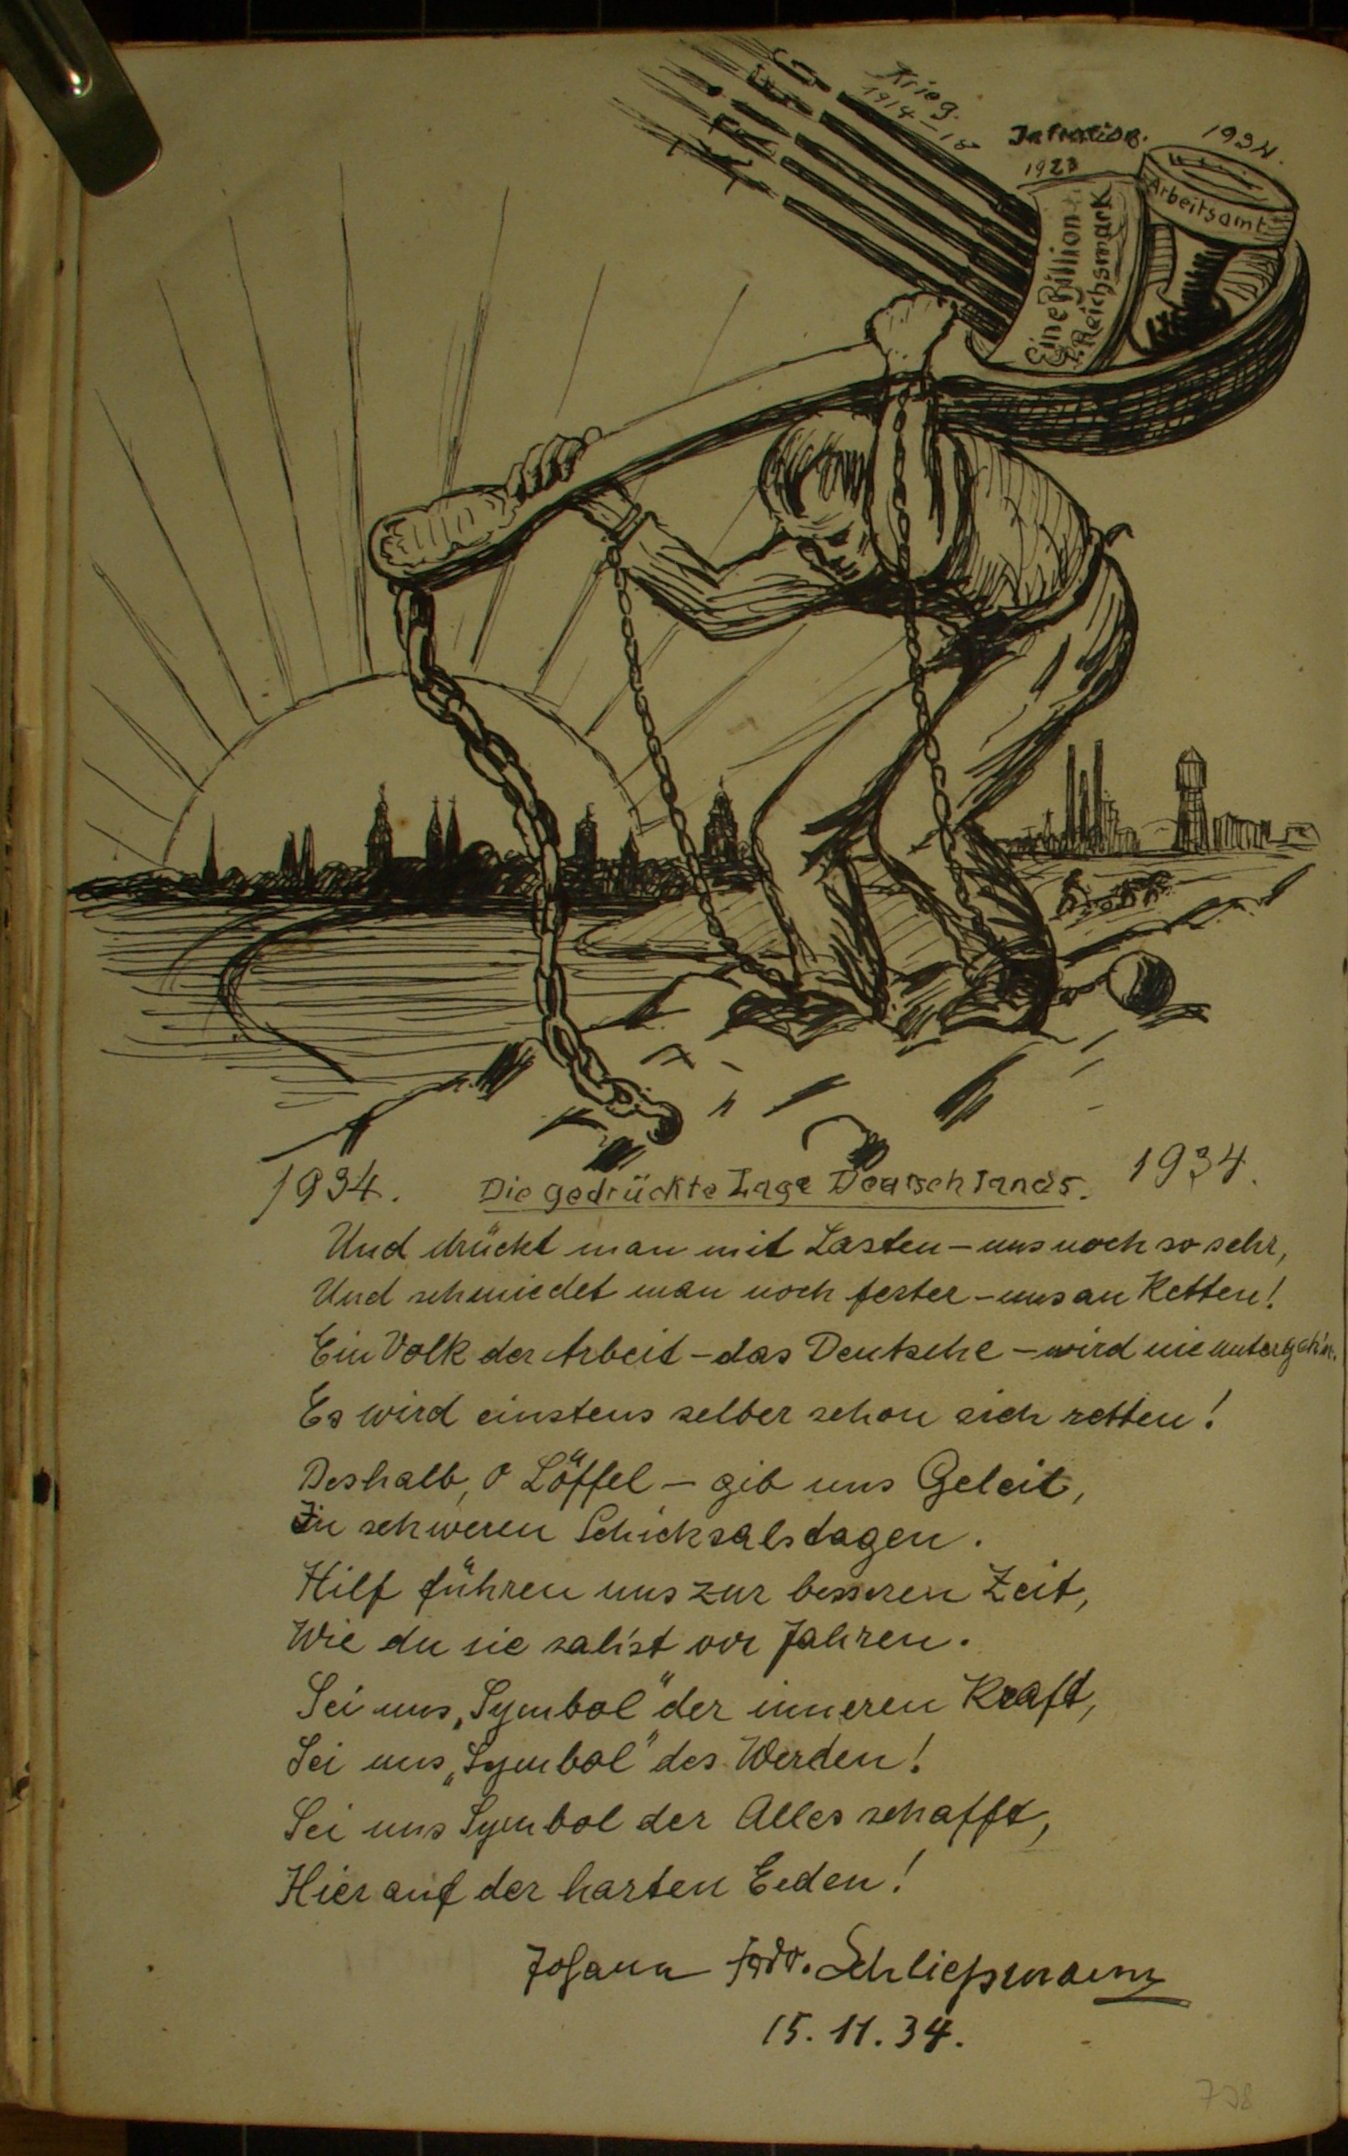 Krieg.
1914–18
Inflation.
1923
1934.
Arbeitsamt
Eine Billion
Reichsmark
1934. Die gedrückte Lage Deutschlands. 1934.
Und drückt man mit Lasten – uns noch so sehr,
Und schmiedet man noch fester – uns an Ketten!
Ein Volk der Arbeit – das Deutsche – wird nie untergeh'n.
Es wird einstens selber schon sich retten!
Deshalb, O Löffel – gib uns Geleit,
In schweren Schicksalstagen.
Hilf führen uns zur besseren Zeit,
Wie du sie sah'st vor Jahren.
Sei uns „Symbol“ der inneren Kraft,
Sei uns „Symbol“ des Werden!
Sei uns Symbol der Alles schafft,
Hier auf der harten Erden!
Johann Schließmann
15.11.34.